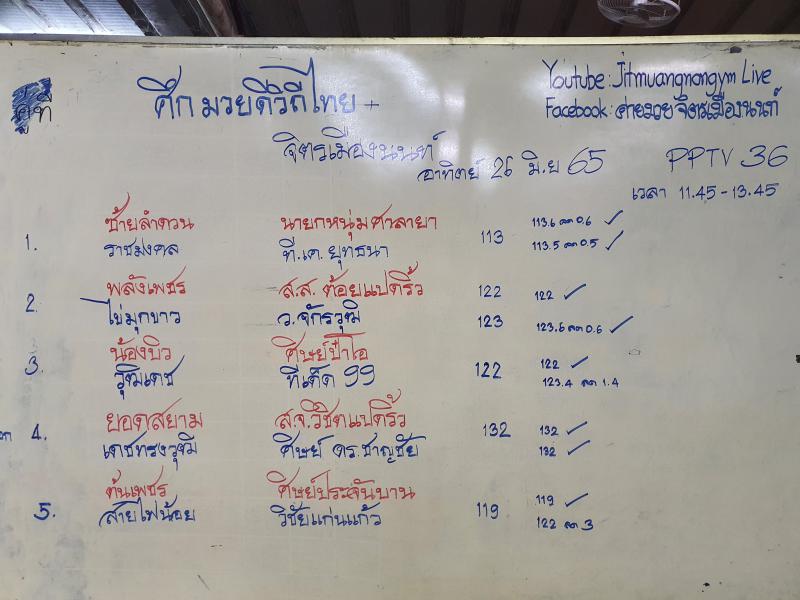 Youtube: Jitmuangnongym Live
คู่ที่ ศึก มวยดีวิถีไทย +
Facebook: ค่ายมวย จิตรเมืองนนท์
จิตรเมืองนนท์
อาทิตย์ 26 มิ.ย 65 PPTV 36
เวลา 11.45 - 13.45
ซ้ายลำดวน นายกหนุ่มศาลายา 113.6 ลด 0.6 ✓
1. 113
ราชมงคล ที.เค. ยุทธนา 113.5 ลด 0.5 ✓
พลังเพชร ส.ส. ต้อยแปดริ้ว 122 122 ✓
2.
ไข่มุกขาว ว.จักรวุฒิ 123 123.6 ลด 0.6 ✓
น้องบิว ศิษย์ป๋าโอ 122 ✓
3. 122
วุฒิเดช ทีเด็ด 99 123.4 ลด 1.4
ยอดสยาม ส.จ.วิชิตแปดริ้ว 132 ✓
4. 132
เดชทรงวุฒิ ศิษย์ ดร.ชาญชัย 132 ✓
ต้นเพชร ศิษย์ประจันบาน 119 ✓
5. 119
สายไฟน้อย วิชัยแก่นแก้ว 122 ลด 3